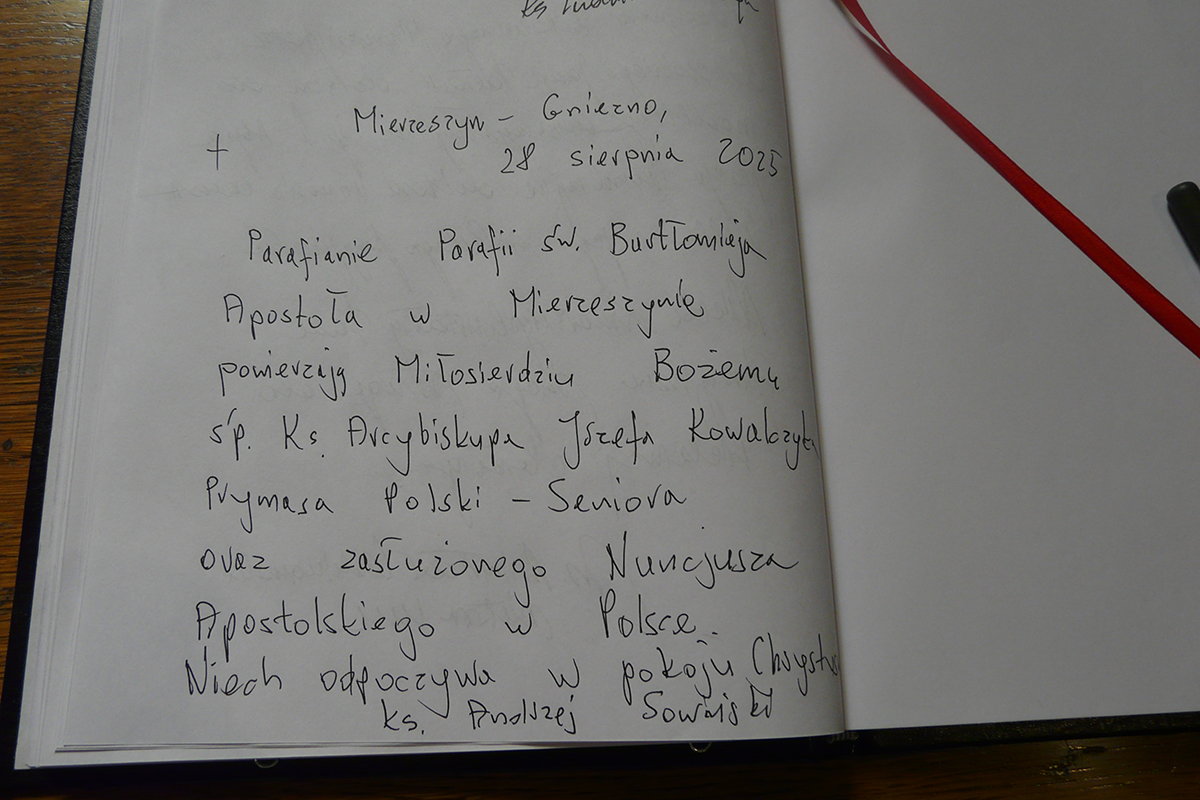 ks
Mierzeszyn – Gniezno,
+ 28 sierpnia 2025
Parafianie Parafii św. Bartłomieja
Apostoła w Mierzeszynie
powierzają Miłosierdziu Bożemu
śp. Ks. Arcybiskupa Józefa Kowalczyka
Prymasa Polski – Seniora
oraz zasłużonego Nuncjusza
Apostolskiego w Polsce.
Niech odpoczywa w pokoju Chrystusa
ks. Andrzej Sowiński